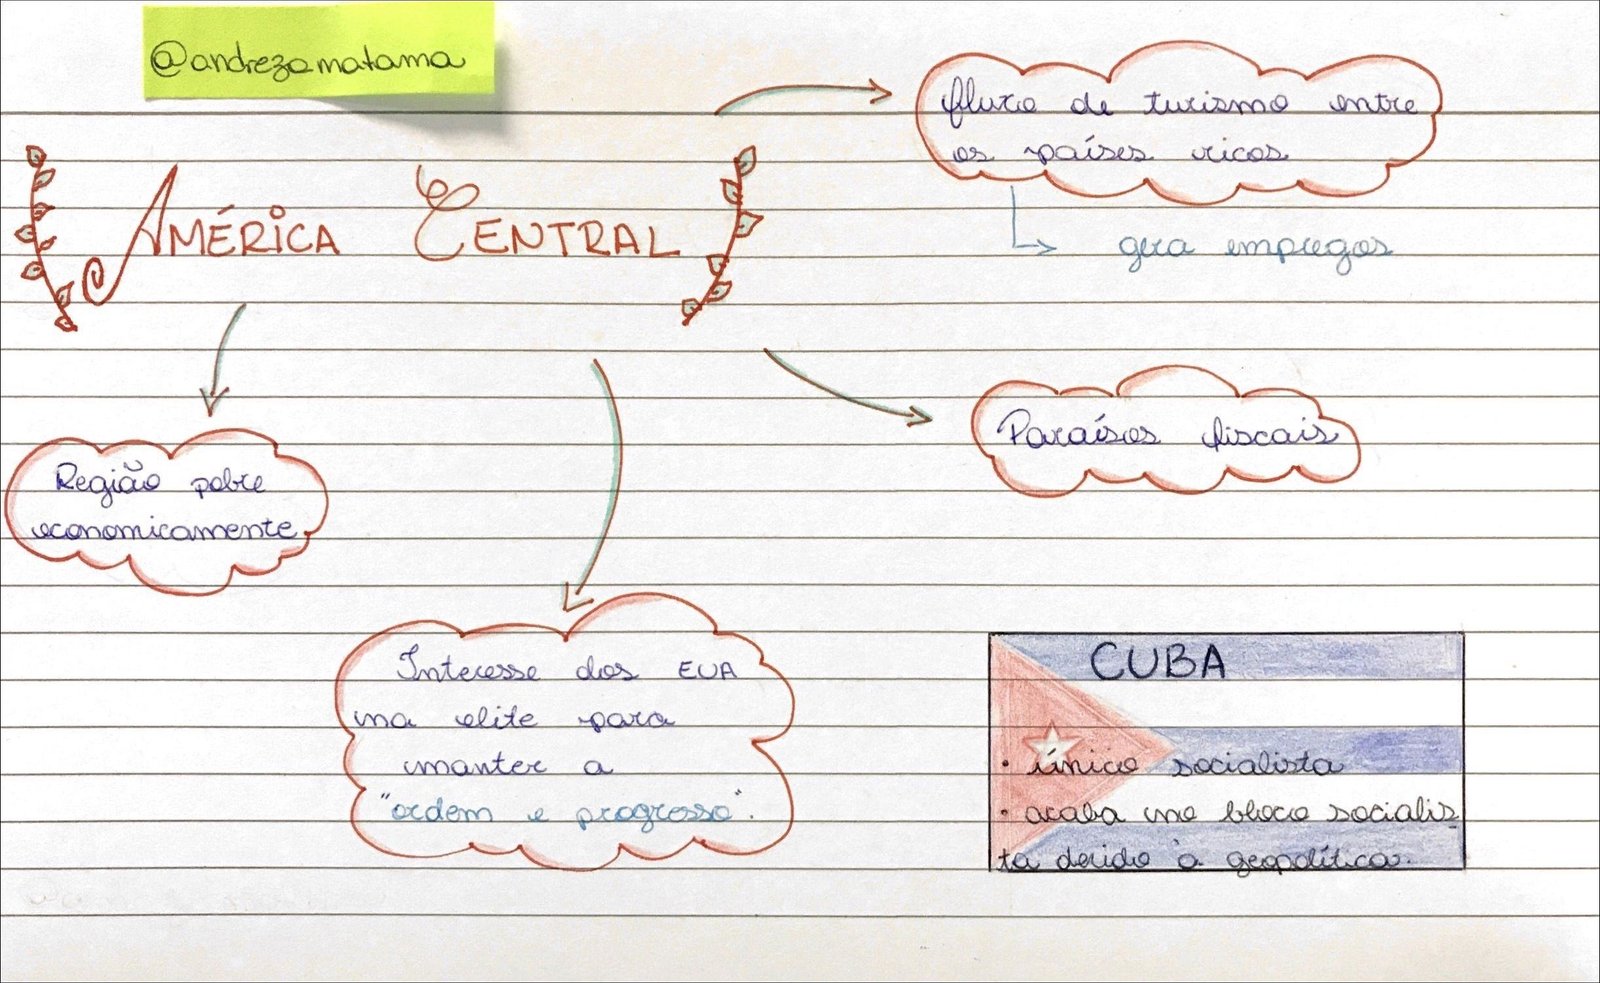 @andrezamatama
AMÉRICA CENTRAL
fluxo de turismo entre
os países ricos
gera empregos
Paraísos fiscais
Região pobre
economicamente
Interesse dos EUA
na elite para
manter a
"ordem e progresso".
CUBA
• único socialista
• acaba no bloco socialis
ta devido à geopolítica.